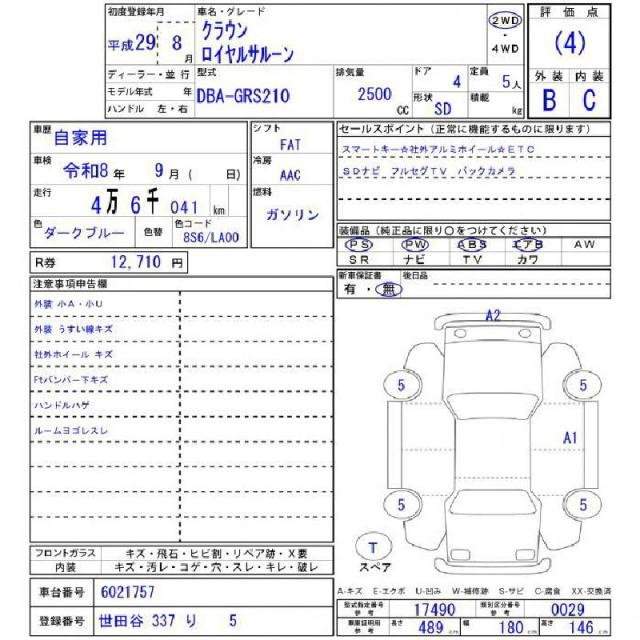 初度登録年月 車名・グレード 2WD 評価点
平成29 8月 クラウン ・ (4)
ロイヤルサルーン 4WD
ディーラー・並行 型式 排気量 ドア 4 定員 5人 外装 内装
モデル年式 年 DBA-GRS210 2500 CC 形状 SD 積載 kg B C
ハンドル 左・右
車歴 自家用 シフト FAT セールスポイント(正常に機能するものに限ります)
車検 令和8年 9月( 日) 冷房 AAC スマートキー☆社外アルミホイール☆ETC
走行 4万6千041km 燃料 ガソリン SDナビ フルセグTV バックカメラ
色 ダークブルー 色替 色コード 8S6/LA00
装備品(純正品に限り○をつけてください)
PS PW ABS エアB AW
SR ナビ TV カワ
R券 12,710 円
新車保証書 有・無 後日品
注意事項申告欄
外装 小A・小U
外装 うすい線キズ
社外ホイール キズ
Ftバンパー下キズ
ハンドルハゲ
ルームヨゴレスレ
A2
5 5
A1
5 5
T
スペア
フロントガラス キズ・飛石・ヒビ割・リペア跡・X要
内装 キズ・汚レ・コゲ・穴・スレ・キレ・破レ
A-キズ E-エクボ U-凹み W-補修跡 S-サビ C-腐食 XX-交換済
車台番号 6021757
型式指定番号 参考 17490 類別区分番号 参考 0029
登録番号 世田谷 337 り 5
車庫証明用 参考 長さ 489 cm 幅 180 cm 高さ 146 cm